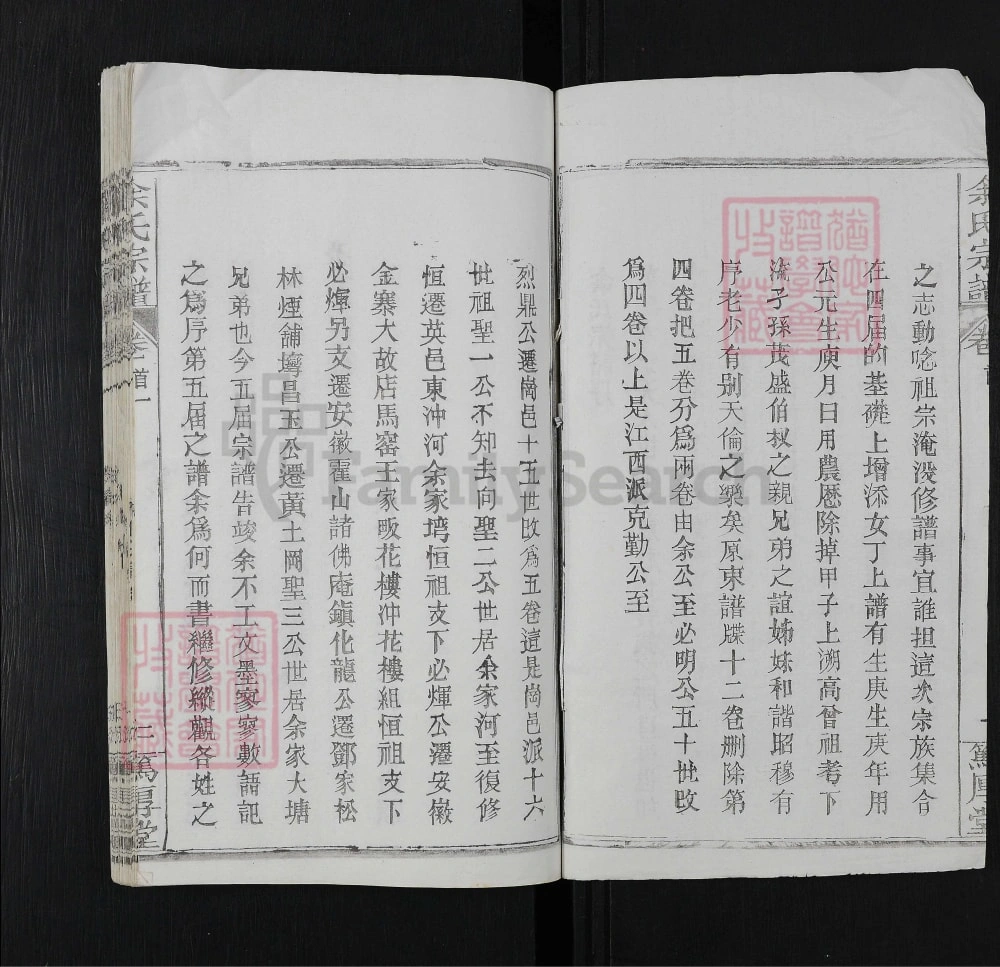 之志動唸祖宗淹没修譜事宜誰担這次宗族集合
在四届的基礎上增添女丁上譜有生庚生庚年用
公元生庚月日用農歷除掉甲子上溯高曾祖考下
流子孫茂盛伯叔之親兄弟之誼姊妹和諧昭穆有
序老少有别天倫之樂矣原東譜牒十二卷删除第
四卷把五卷分爲兩卷由余公至必明公五十世改
爲四卷以上是江西派克勤公至
烈鼎公遷崗邑十五世改爲五卷這是崗邑派十六
世祖聖一公不知去向聖二公世居余家河至復修
恒遷英邑東冲河余家塆恒祖支下必煇公遷安徽
金寨大故店馬窑王家畈花樓冲花樓組恒祖支下
必煇另支遷安徽霍山諸佛庵鎮化龍公遷鄧家松
林煙舖塆昌玉公遷黄土岡聖三公世居余家大塘
兄弟也今五届宗譜告竣余不工文墨寥寥數語記
之爲序第五届之譜余爲何而書繼修縱觀各姓之
余氏宗譜
卷首
一
篤厚堂
余氏宗譜
卷首一
二
篤厚堂
FamilySearch